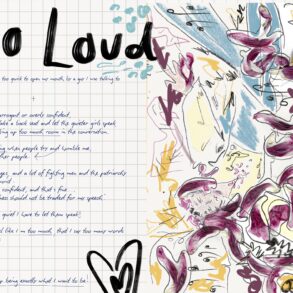 o Loud
too quiet to open my mouth, or a girl like talking to
arrogant or overly confident,
take a back seat and let the quieter girls speak,
taking up too much room in the conversation.
when people try and humble me,
other people.
and a lot of fighting men and the patriarchy
confident, and that's fine.
should not be treated for my speech.
quiet I have to let them speak,
feel like i'm too much, that i say too many words
being exactly what i want to be!